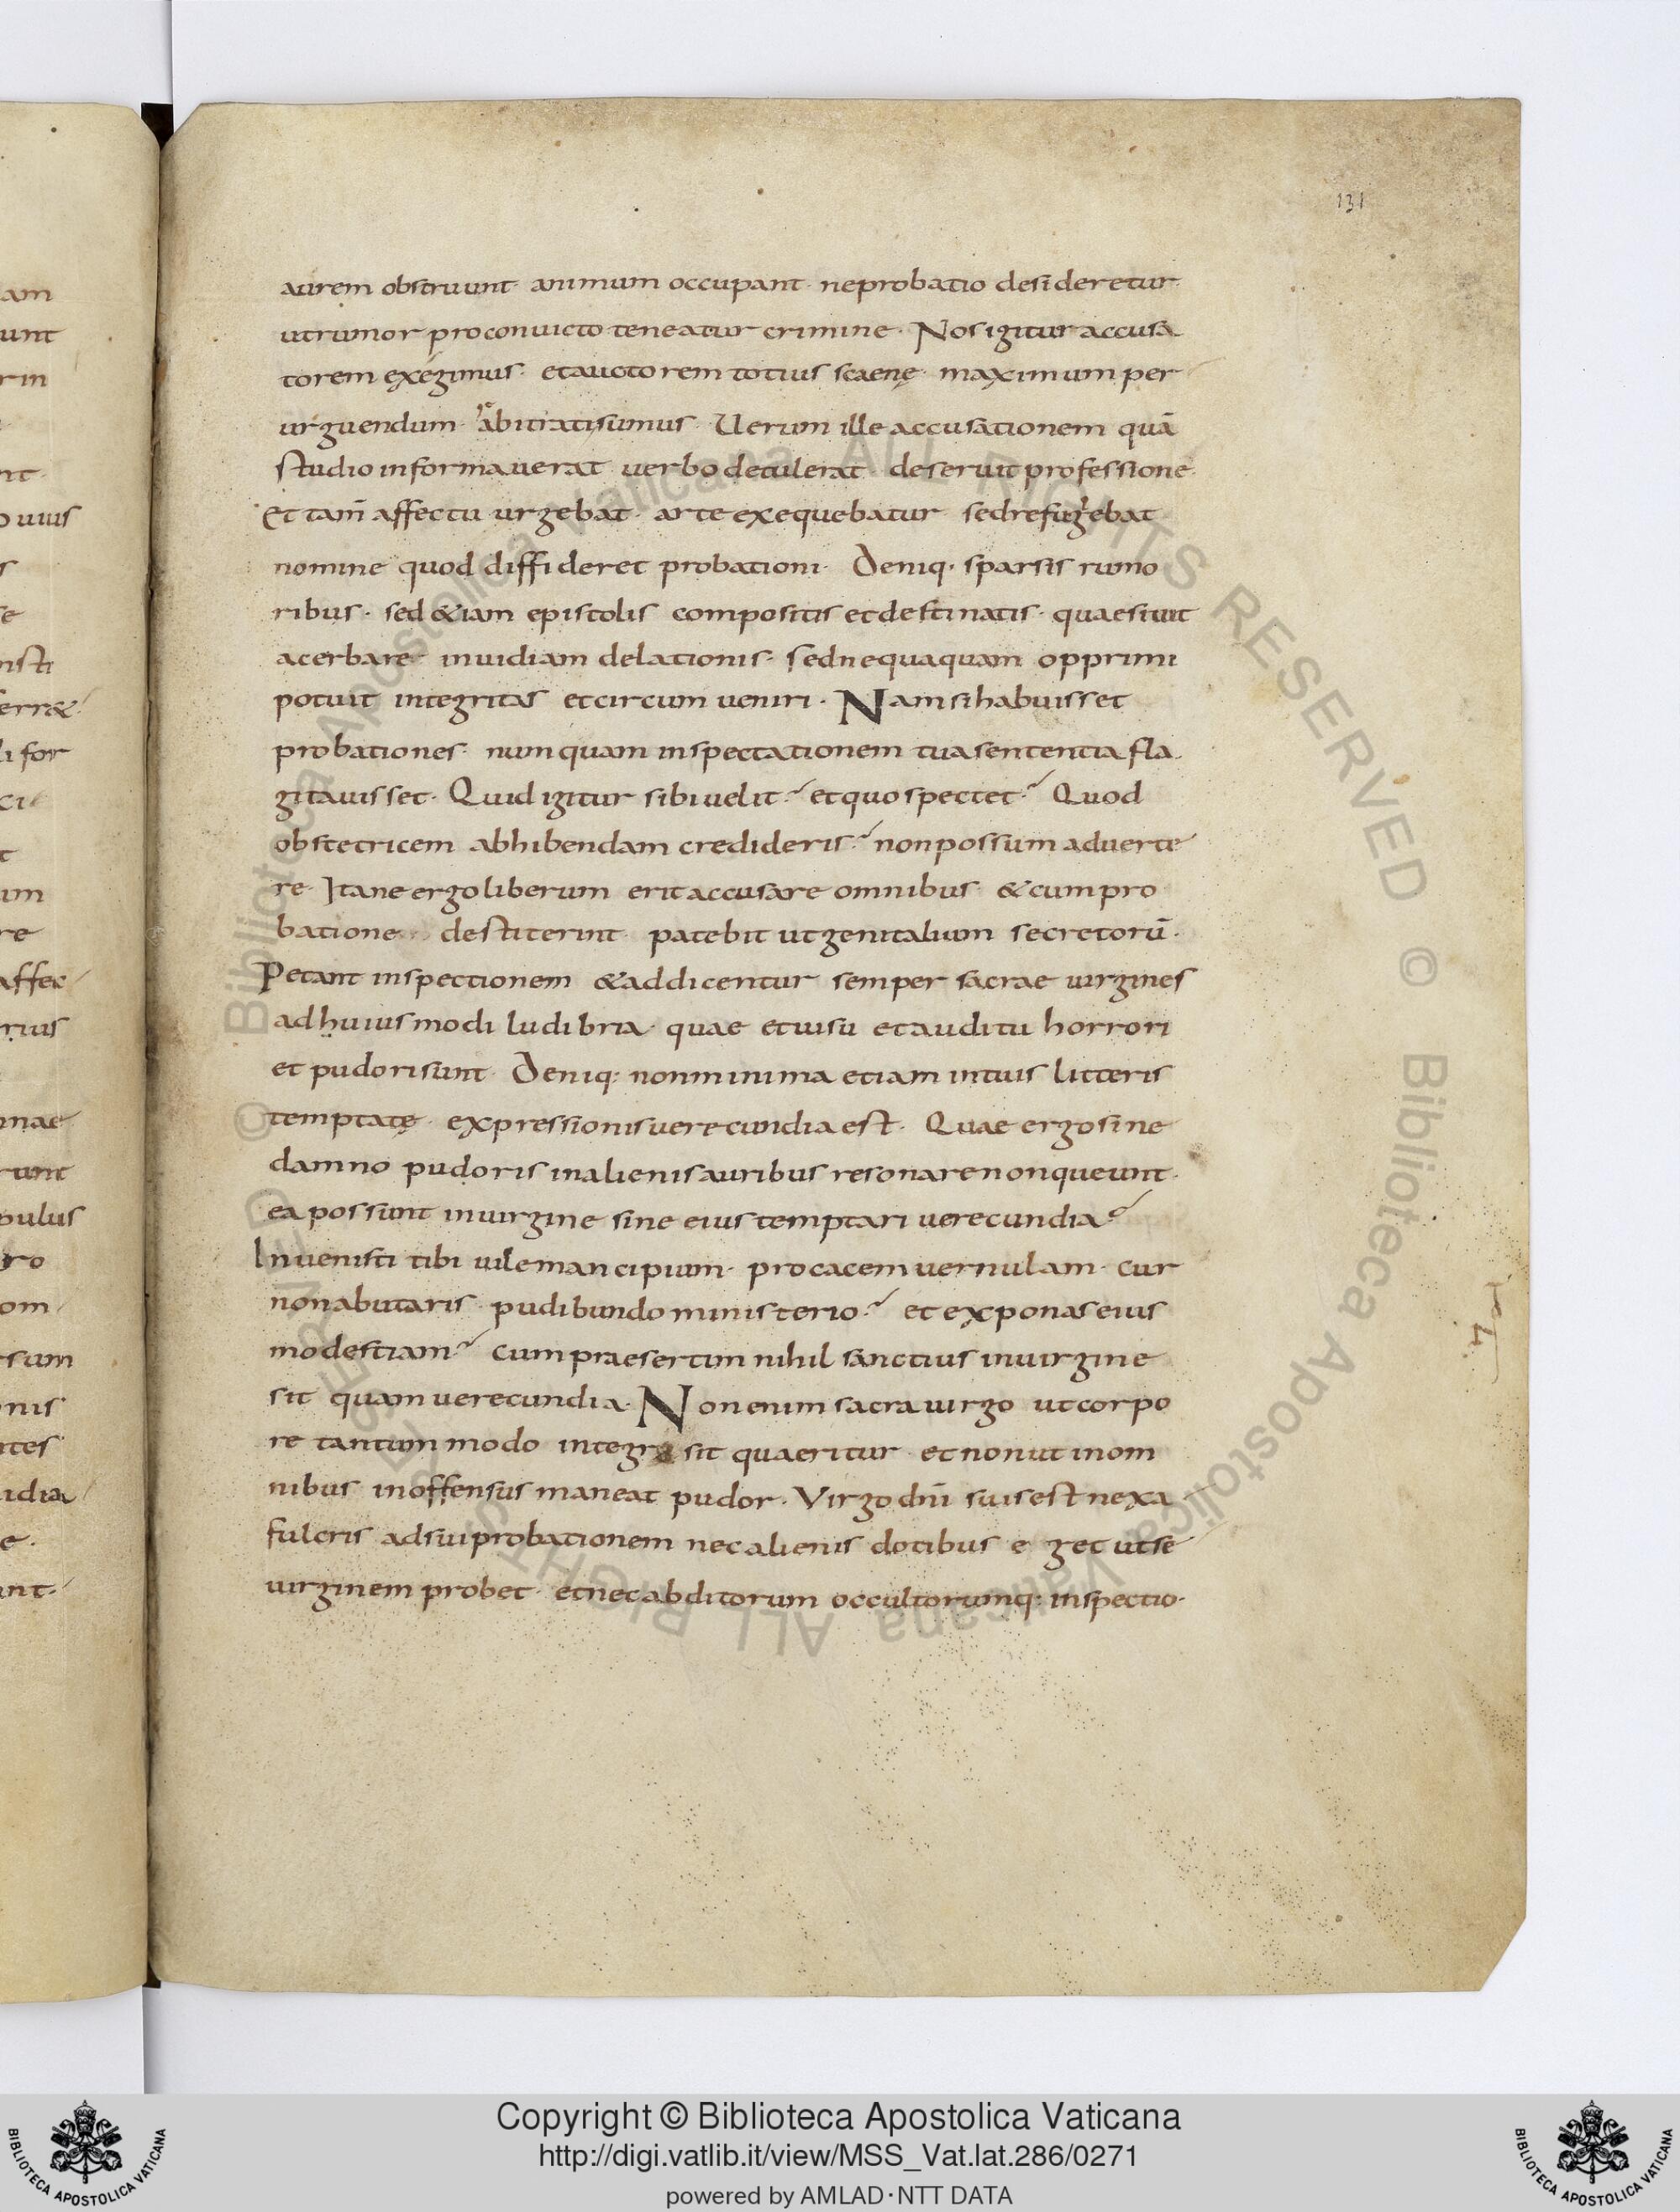 131
aurem obstruunt· animum occupant· neprobatio desideretur·
utrumor proconuicto teneatur crimine· Nos igitur accusa
torem exegimus· etauctorem totius scaenę· maximum per
urguendum· abitratisumus· Uerum ille accusationem quā
studio informauerat uerbo detulerat· deseruit professione·
Et tam̄ affectu urgebat· arte exequebatur sedrefugebat
nomine quod diffideret probationi· Deniq· sparsis rumo
ribus· sed &iam epistolis compositis etdestinatis· quaesiuit
acerbare inuidiam delationis· sednequaquam opprimi
potuit integritas etcircumueniri· Nam sihabuisset
probationes· numquam inspectationem tuasententia fla
gitauisset· Quid igitur sibi uelit? etquo spectet? Quod
obstetricem abhibendam credideris? non possum aduerte
re· Itane ergo liberum erit accusare omnibus· &cumpro
batione destiterint· patebit ut genitalium secretorū·
Petant inspectionem &addicentur semper sacrae uirgines
ad huiusmodi ludibria· quae etuisu etauditu horrori
et pudorisunt· Deniq: nonminima etiam intuis litteris
temptatę expressionis uerecundia est· Quae ergo sine
damno pudoris inalienis auribus resonare nonqueunt·
ea possunt inuirgine sine eius temptari uerecundia?
Inuenisti tibi uile mancipium· procacem uernulam· cur
nonabutaris pudibundo ministerio? et exponas eius
modestiam? cum praesertim nihil sanctius inuirgine
sit quam uerecundia· Non enim sacra uirgo ut corpo
re tantummodo integra sit quaeritur et nonut inom
nibus inoffensus maneat pudor· Virgo dn̄i suis est nexa
fulcris adsui probationem nec alienis dotibus e get ut se
uirginem probet· etnec abditorum occultorumq: inspectio·
am
unt
rin
nt·
uius
se
nsti
err&
li for
ci
t
um
re
affec
rius
mnae
runt
pulus
ro
om
rsum
nis
ntes
idia
e·
ant·
© Biblioteca Apostolica Vaticana ALL RIGHTS RESERVED
© Biblioteca Apostolica Vaticana ALL RIGHTS RESERVED
Copyright © Biblioteca Apostolica Vaticana
http://digi.vatlib.it/view/MSS_Vat.lat.286/0271
powered by AMLAD·NTT DATA
BIBLIOTECA APOSTOLICA VATICANA
BIBLIOTECA APOSTOLICA VATICANA